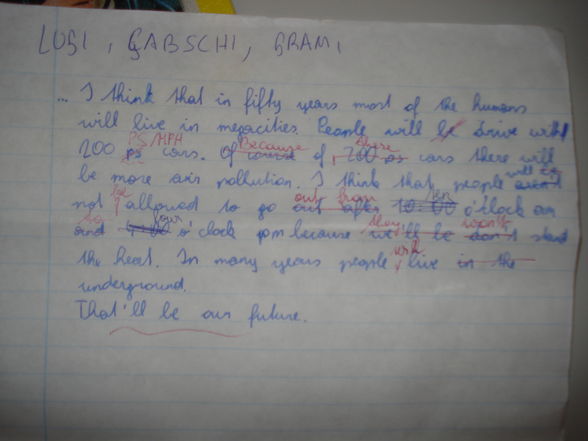 LUGI, GABSCHI, GRAMI
... I think that in fifty years most of the humans
will live in megacities. People will be drive with
PS/MPH
200 ps cars. Of course Because of these 200 ps cars there will
be more air pollution. I think that people will be
not be allowed to go out from out after 10:00 ten o'clock am
to and 4:00 four o'clock pm because they we'll be won't don't stand
the heat. In many years people will live in the
underground.
That'll be our future.